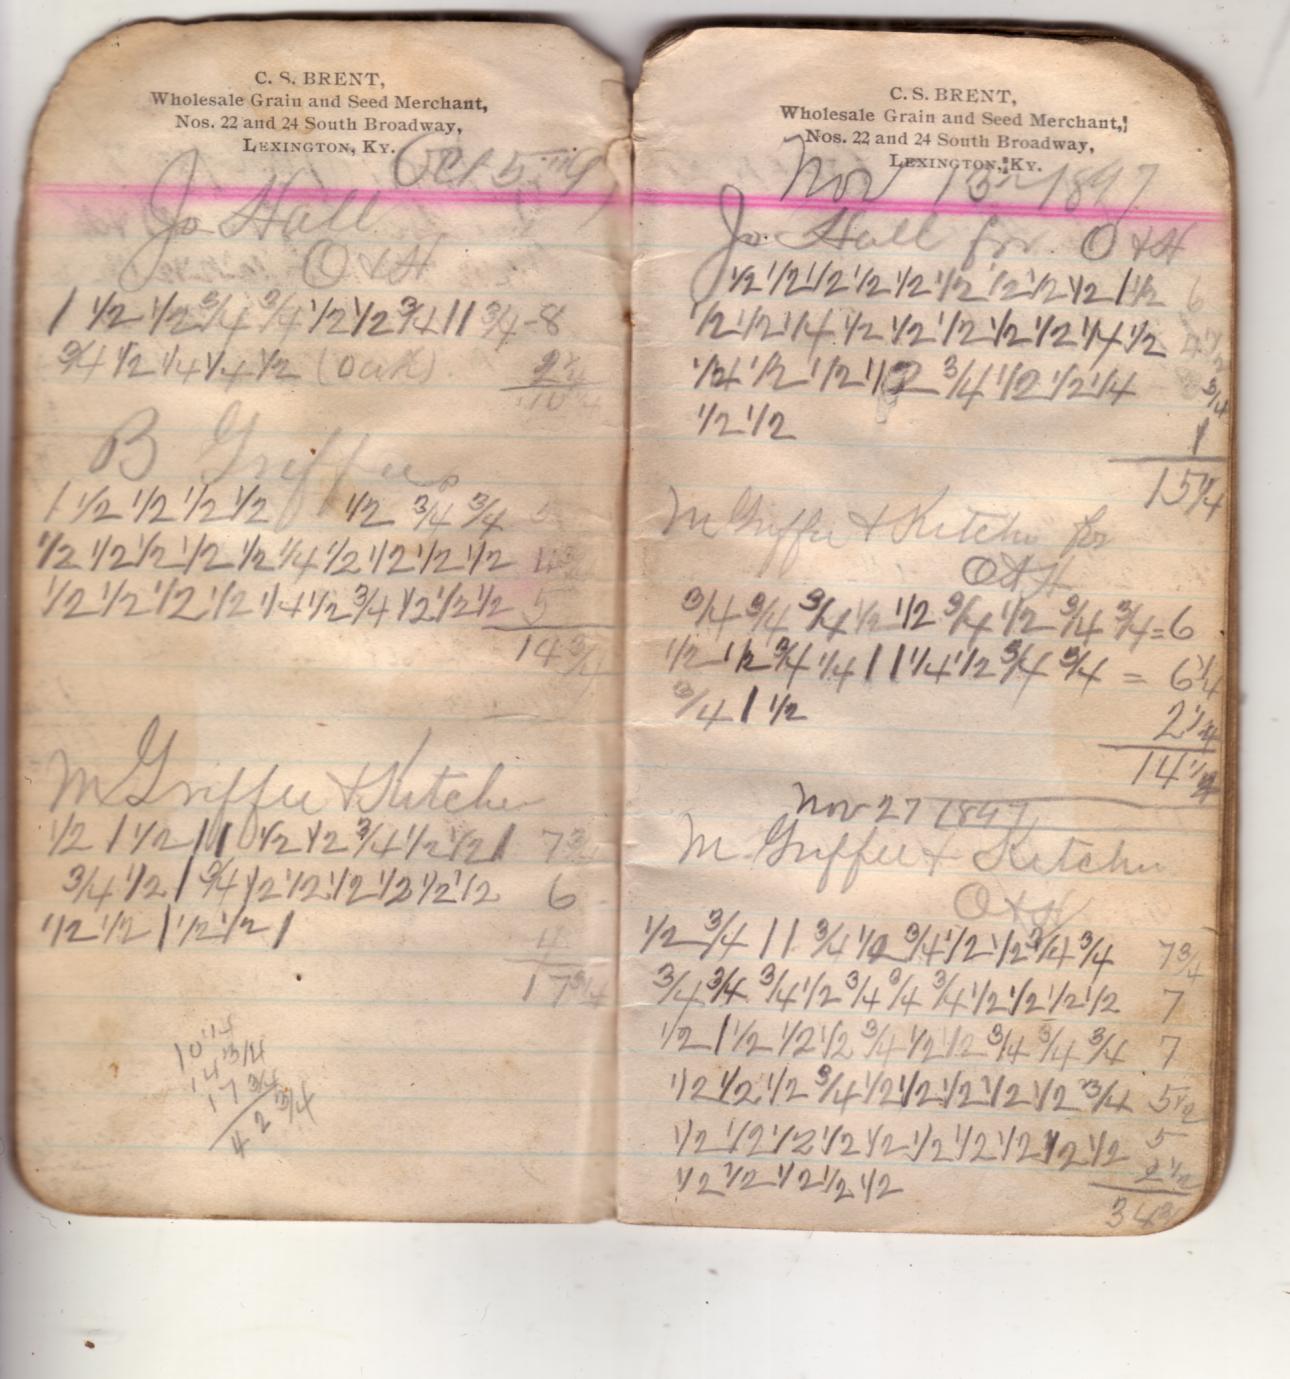 C. S. BRENT,
Wholesale Grain and Seed Merchant,
Nos. 22 and 24 South Broadway,
LEXINGTON, KY.
Oct 5
Jo Hall
O & H
1 1/2 1/2 3/4 3/4 1/2 1/2 3/4 1 1 3/4 - 8
3/4 1/2 1/4 1/4 1/2 (Oak) 2 1/4
10 1/4
B Griffee
1 1/2 1/2 1/2 1/2 1/2 3/4 3/4 5
1/2 1/2 1/2 1/2 1/2 1/4 1/2 1/2 1/2 1/2 4 3/4
1/2 1/2 1/2 1/2 1/4 1/2 3/4 1/2 1/2 1/2 5
14 3/4
M Griffee & Kitchen
1/2 1 1/2 1 1 1/2 1/2 3/4 1/2 1/2 1 7 3/4
3/4 1/2 1 3/4 1/2 1/2 1/2 1/2 1/2 1/2 6
1/2 1/2 1 1/2 1/2 1 4
17 3/4
10 1/4
14 3/4
17 3/4
42 3/4
C. S. BRENT,
Wholesale Grain and Seed Merchant,
Nos. 22 and 24 South Broadway,
LEXINGTON, KY.
Nov 13 1897
Jo Hall for O & H
1/2 1/2 1/2 1/2 1/2 1/2 1/2 1/2 1/2 1 1/2 6
1/2 1/2 1/4 1/2 1/2 1/2 1/2 1/2 1/4 1/2 4 1/2
1/4 1/2 1/2 1/2 3/4 1/2 1/2 1/4 3/4
1/2 1/2 1
15 1/4
M Griffee & Kitchen for
O & H
3/4 3/4 3/4 1/2 1/2 3/4 1/2 3/4 3/4 = 6
1/2 1/2 3/4 1/4 1 1 1/4 1/2 3/4 3/4 = 6 1/4
3/4 1 1/2 2 1/4
14 1/2
Nov 27 1897
M Griffee & Kitchen
O & H
1/2 3/4 1 1 3/4 1/2 3/4 1/2 1/2 3/4 3/4 7 3/4
3/4 3/4 3/4 1/2 3/4 3/4 3/4 1/2 1/2 1/2 1/2 7
1/2 1 1/2 1/2 1/2 3/4 1/2 1/2 3/4 3/4 3/4 7
1/2 1/2 1/2 3/4 1/2 1/2 1/2 1/2 1/2 3/4 5 1/2
1/2 1/2 1/2 1/2 1/2 1/2 1/2 1/2 1/2 1/2 5
1/2 1/2 1/2 1/2 1/2 2 1/2
34 3/4